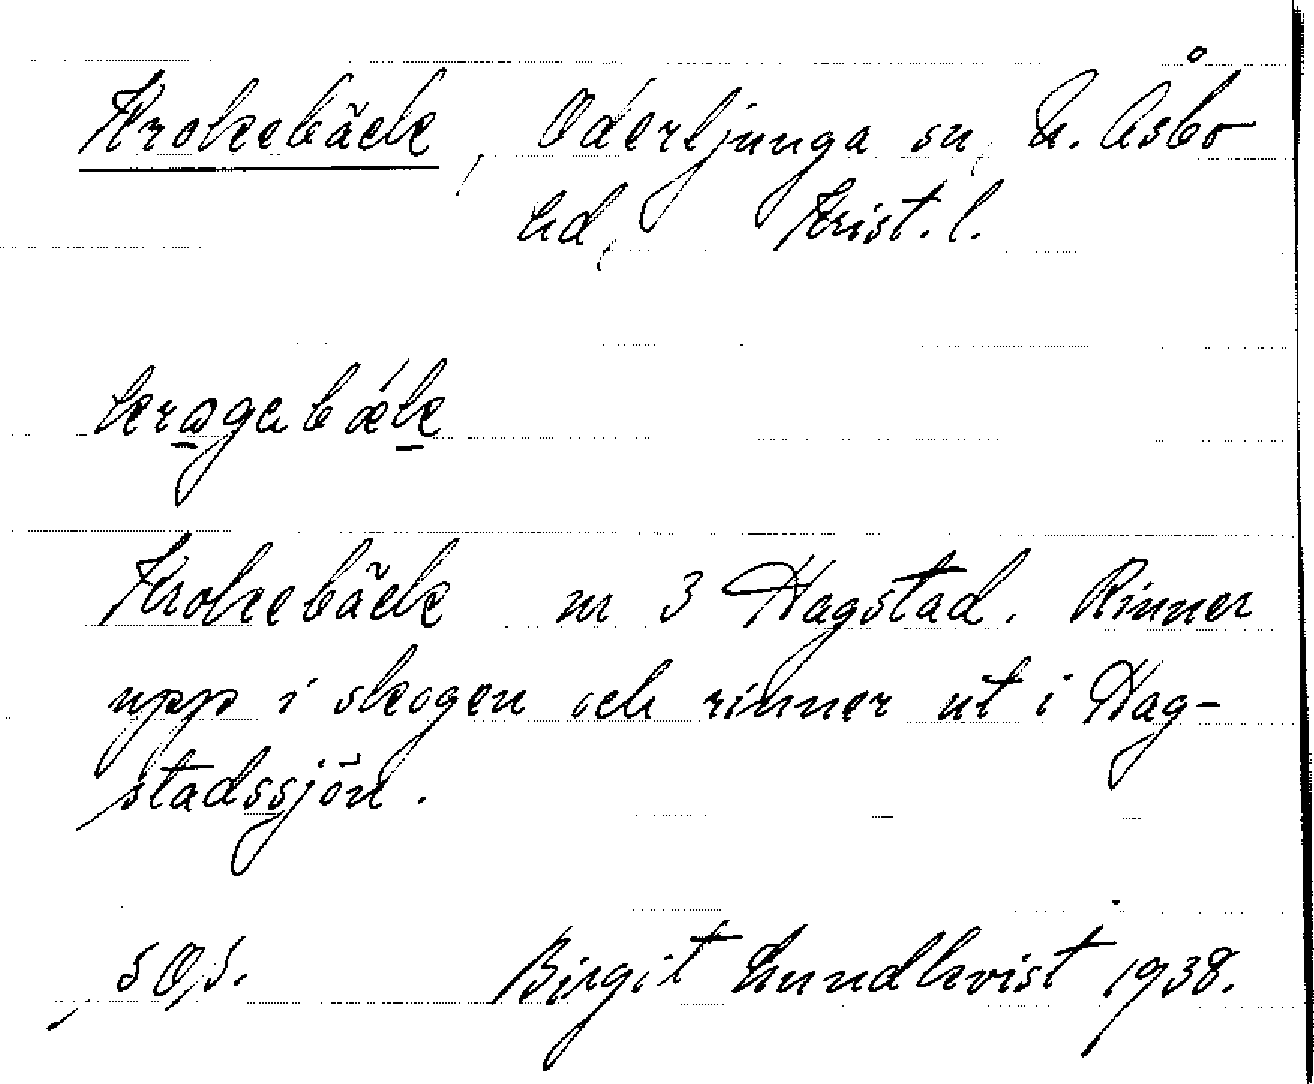 Krokebäck, Oderljunga sn, N. Åsbo
hd, Krist. l.
krogabǽk
Krokebäck nr 3 Hagstad. Rinner
upp i skogen och rinner ut i Hag-
stadssjön.
Birgit Lundkvist 1938.